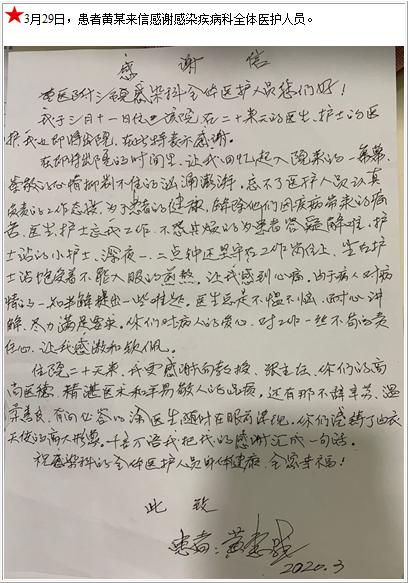 ★3月29日，患者黄某来信感谢感染疾病科全体医护人员。
感谢信
医附二院感染科全体医护人员您们好！
我于三月十一日住进该院，在二十来天的医生、护士的医
护我立即将出院，在此特表示感谢。
在即将出院的时间里，让我回忆起入院来的一幕幕，
激动的心情抑制不住的汹涌澎湃，忘不了医护人员认真
负责的工作态度，为了患者的健康，解除他们因疾病带来的病
苦，医生、护士忘我工作，不厌其烦的为患者答疑解难，护
士站的小护士，深夜一、二点钟还坚守在工作岗位上，坐在护
士站饱受着不能入眠的煎熬，让我感到心痛。由于病人对病
情的一知半解提出一些难处，医生总是不愠不恼，耐心讲
解，尽力满足要求。你们对病人的爱心，对工作一丝不苟的责
任心，让我感激和钦佩。
住院二十来天，我更感谢向教授、张主任，你们的高
尚医德，精湛医术和平易敬人的品质，还有那不辞辛苦、温
柔善良、有问必答的涂医生，随时在眼前浮现。你们诠释了白衣
天使的高大形象。千言万语我把我的感谢汇成一句话。
祝感染科的全体医护人员身体健康，全家幸福！
此致
患者：黄
2020.3